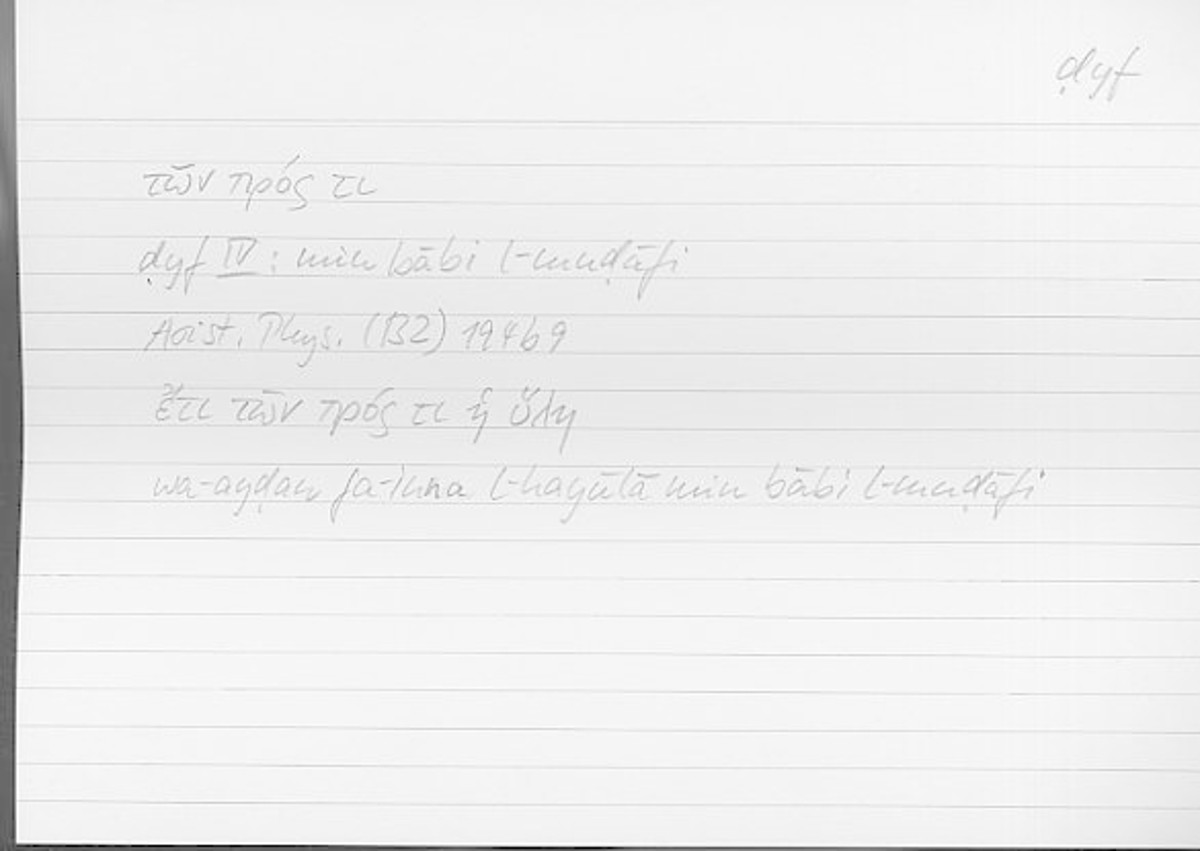 ḍyf
τῶν πρός τι
ḍyf IV : min bābi l-muḍāfi
Arist. Phys. (B2) 194b9
ἔτι τῶν πρός τι ἡ ὕλη
wa-ayḍan fa-inna l-hayūlā min bābi l-muḍāfi